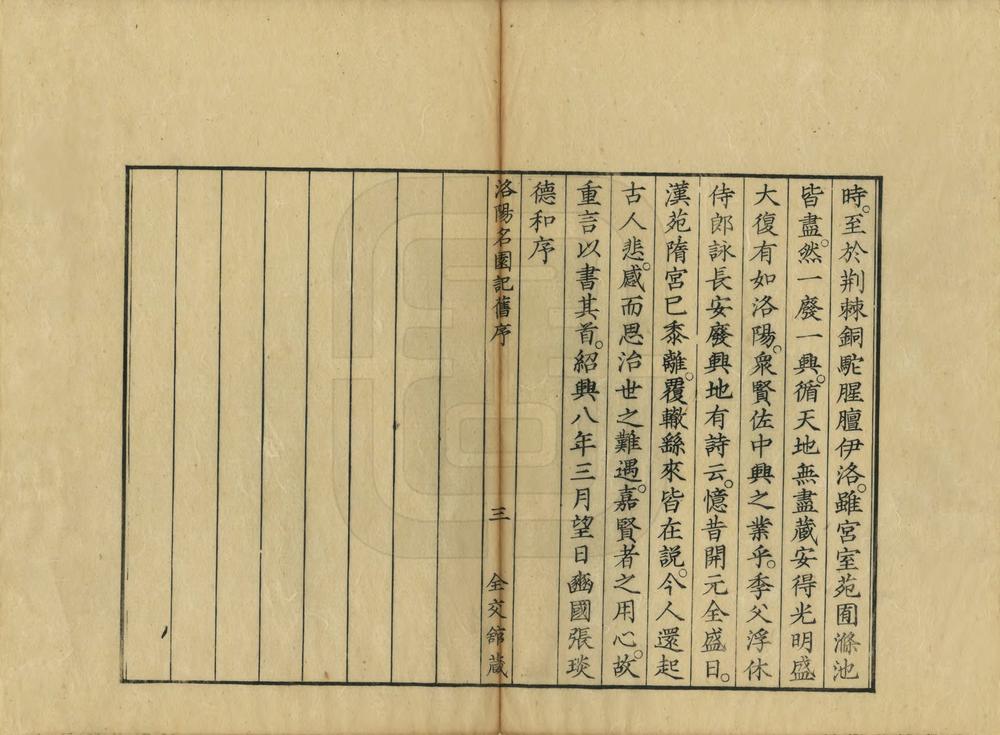 時。至於荆棘銅駝腥膻伊洛。雖宮室苑囿滌池
皆盡。然一廢一興。循天地無盡藏安得光明盛
大復有如洛陽。衆賢佐中興之業乎。季父浮休
侍郎詠長安廢興地有詩云。憶昔開元全盛日。
漢苑隋宮已黍離。覆轍繇來皆在説。今人還起
古人悲。感而思治世之難遇。嘉賢者之用心。故
重言以書其首。紹興八年三月望日豳國張琰
德和序
洛陽名園記舊序 三 全交館藏